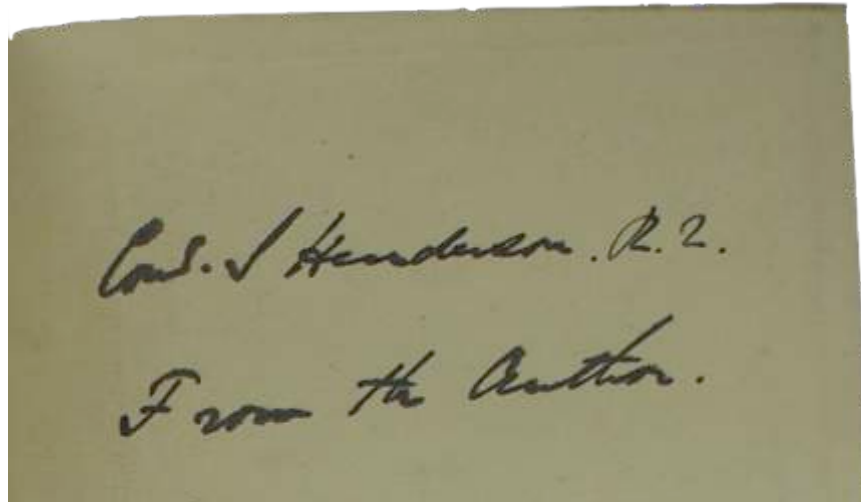 Com. J Henderson. R.N.
From the Author.